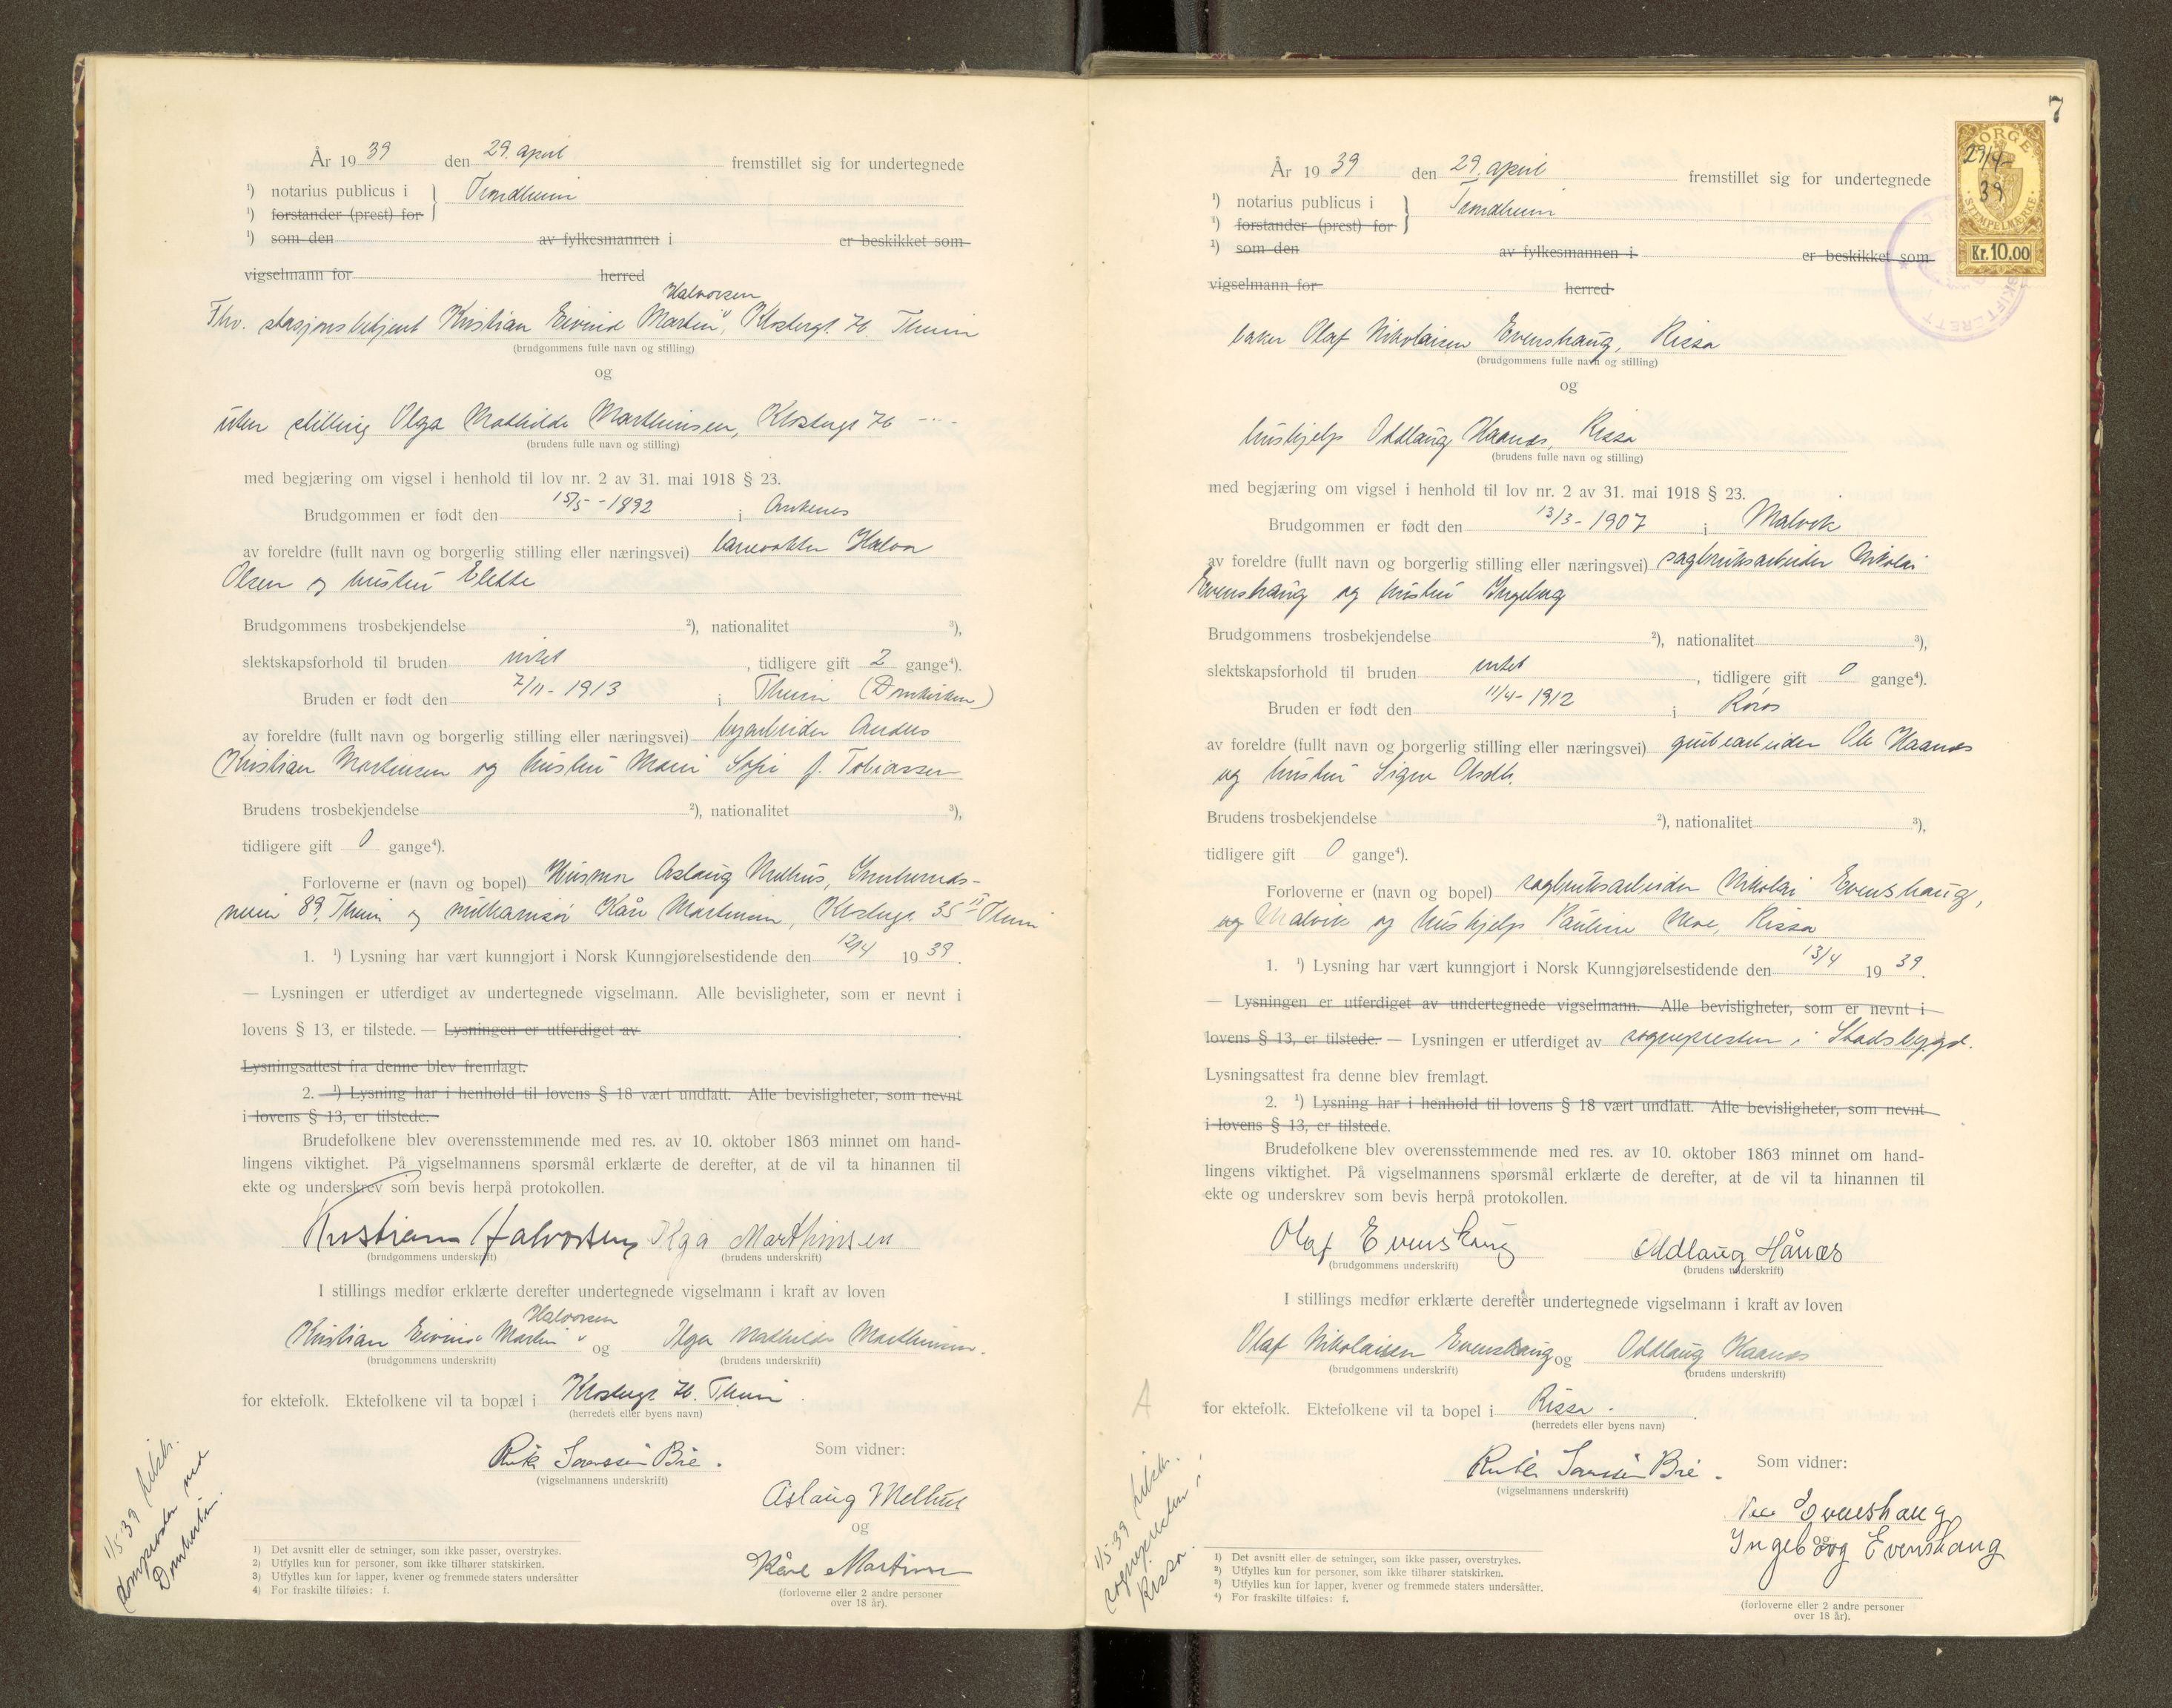 År 1939 den 29. april fremstillet sig for undertegnede
¹) notarius publicus i } Trondheim
¹) forstander (prest) for
¹) som den av fylkesmannen i er beskikket som
vigselmann for herred
Halvorsen
Fhv. stasjonsbetjent Kristian Eivind Martin, Klostergt. 76 Theim
(brudgommens fulle navn og stilling)
og
uten stilling Olga Mathilde Marthinsen, Klostergt 76 -"-
(brudens fulle navn og stilling)
med begjæring om vigsel i henhold til lov nr. 2 av 31. mai 1918 § 23.
Brudgommen er født den 15/5-1892 i Ankenes
av foreldre (fullt navn og borgerlig stilling eller næringsvei) banevokter Halvor
Olsen og hustru Elette
Brudgommens trosbekjendelse ²), nationalitet ³),
slektskapsforhold til bruden intet, tidligere gift 2 gange⁴).
Bruden er født den 7/11-1913 i Theim (Domkirken)
av foreldre (fullt navn og borgerlig stilling eller næringsvei) byarbeider Anders
Kristian Martinsen og hustru Marie Sofie f. Tobiassen
Brudens trosbekjendelse ²), nationalitet ³),
tidligere gift 0 gange⁴).
Forloverne er (navn og bopel) Husmor Aslaug Melhus, Innherreds-
veien 89, Theim og Kåre Martinsen, Klostergt. 35 II Theim
1. ¹) Lysning har vært kunngjort i Norsk Kunngjørelsestidende den 12/4 1939.
— Lysningen er utferdiget av undertegnede vigselmann. Alle bevisligheter, som er nevnt i
lovens § 13, er tilstede. — Lysningen er utferdiget av
Lysningsattest fra denne blev fremlagt.
2. ¹) Lysning har i henhold til lovens § 18 vært undlatt. Alle bevisligheter, som nevnt
i lovens § 13, er tilstede.
Brudefolkene blev overensstemmende med res. av 10. oktober 1863 minnet om hand-
lingens viktighet. På vigselmannens spørsmål erklærte de derefter, at de vil ta hinannen til
ekte og underskrev som bevis herpå protokollen.
Kristian Halvorsen Olga Marthinsen
(brudgommens underskrift) (brudens underskrift)
I stillings medfør erklærte derefter undertegnede vigselmann i kraft av loven
Halvorsen
Kristian Eivind Martin og Olga Mathilde Marthinsen.
(brudgommens underskrift) (brudens underskrift)
for ektefolk. Ektefolkene vil ta bopæl i Klostergt 76. Theim.
(herredets eller byens navn)
Som vidner:
Bie.
(vigselmannens underskrift)
Aslaug Melhus
og
Kåre Martinsen
(forloverne eller 2 andre personer
over 18 år).
1) Det avsnitt eller de setninger, som ikke passer, overstrykes.
2) Utfylles kun for personer, som ikke tilhører statskirken.
3) Utfylles kun for lapper, kvener og fremmede staters undersåtter
4) For fraskilte tilføies: f.
1/5-39 tilskr.
domprosten ved
Domkirken.
7
NORGE
29/4-
39
STEMPELMERKE
Kr. 10.00
SKIFTERETT
År 1939 den 29. april fremstillet sig for undertegnede
¹) notarius publicus i } Trondheim
¹) forstander (prest) for
¹) som den av fylkesmannen i er beskikket som
vigselmann for herred
baker Olaf Nikolaisen Evenshaug, Rissa
(brudgommens fulle navn og stilling)
og
hushjelp Oddlaug Haanæs, Rissa
(brudens fulle navn og stilling)
med begjæring om vigsel i henhold til lov nr. 2 av 31. mai 1918 § 23.
Brudgommen er født den 13/3-1907 i Malvik
av foreldre (fullt navn og borgerlig stilling eller næringsvei) sagbruksarbeider Nikolai
Evenshaug og hustru Ingeborg
Brudgommens trosbekjendelse ²), nationalitet ³),
slektskapsforhold til bruden intet, tidligere gift 0 gange⁴).
Bruden er født den 11/4-1912 i Røros
av foreldre (fullt navn og borgerlig stilling eller næringsvei) grubearbeider Ole Haanæs
og hustru Signe
Brudens trosbekjendelse ²), nationalitet ³),
tidligere gift 0 gange⁴).
Forloverne er (navn og bopel) sagbruksarbeider Nikolai Evenshaug,
og Malvik og hushjelp Pauline Moe, Rissa
1. ¹) Lysning har vært kunngjort i Norsk Kunngjørelsestidende den 13/4 1939.
— Lysningen er utferdiget av undertegnede vigselmann. Alle bevisligheter, som er nevnt i
lovens § 13, er tilstede. — Lysningen er utferdiget av sognepresten i Stadsbygd.
Lysningsattest fra denne blev fremlagt.
2. ¹) Lysning har i henhold til lovens § 18 vært undlatt. Alle bevisligheter, som nevnt
i lovens § 13, er tilstede.
Brudefolkene blev overensstemmende med res. av 10. oktober 1863 minnet om hand-
lingens viktighet. På vigselmannens spørsmål erklærte de derefter, at de vil ta hinannen til
ekte og underskrev som bevis herpå protokollen.
Olaf Evenshaug Oddlaug Hånæs
(brudgommens underskrift) (brudens underskrift)
I stillings medfør erklærte derefter undertegnede vigselmann i kraft av loven
Olaf Nikolaisen Evenshaug og Oddlaug Haanæs
(brudgommens underskrift) (brudens underskrift)
A
for ektefolk. Ektefolkene vil ta bopel i Rissa.
(herredets eller byens navn)
Som vidner:
Bie.
(vigselmannens underskrift)
Evenshaug
og
Ingeborg Evenshaug
(forloverne eller 2 andre personer
over 18 år).
1) Det avsnitt eller de setninger, som ikke passer, overstrykes.
2) Utfylles kun for personer, som ikke tilhører statskirken.
3) Utfylles kun for lapper, kvener og fremmede staters undersåtter.
4) For fraskilte tilføies: f.
1/5-39 tilskr.
sognepresten i
Rissa.